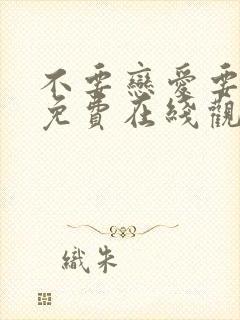 不要戀愛要
免費在綫觀
織朱